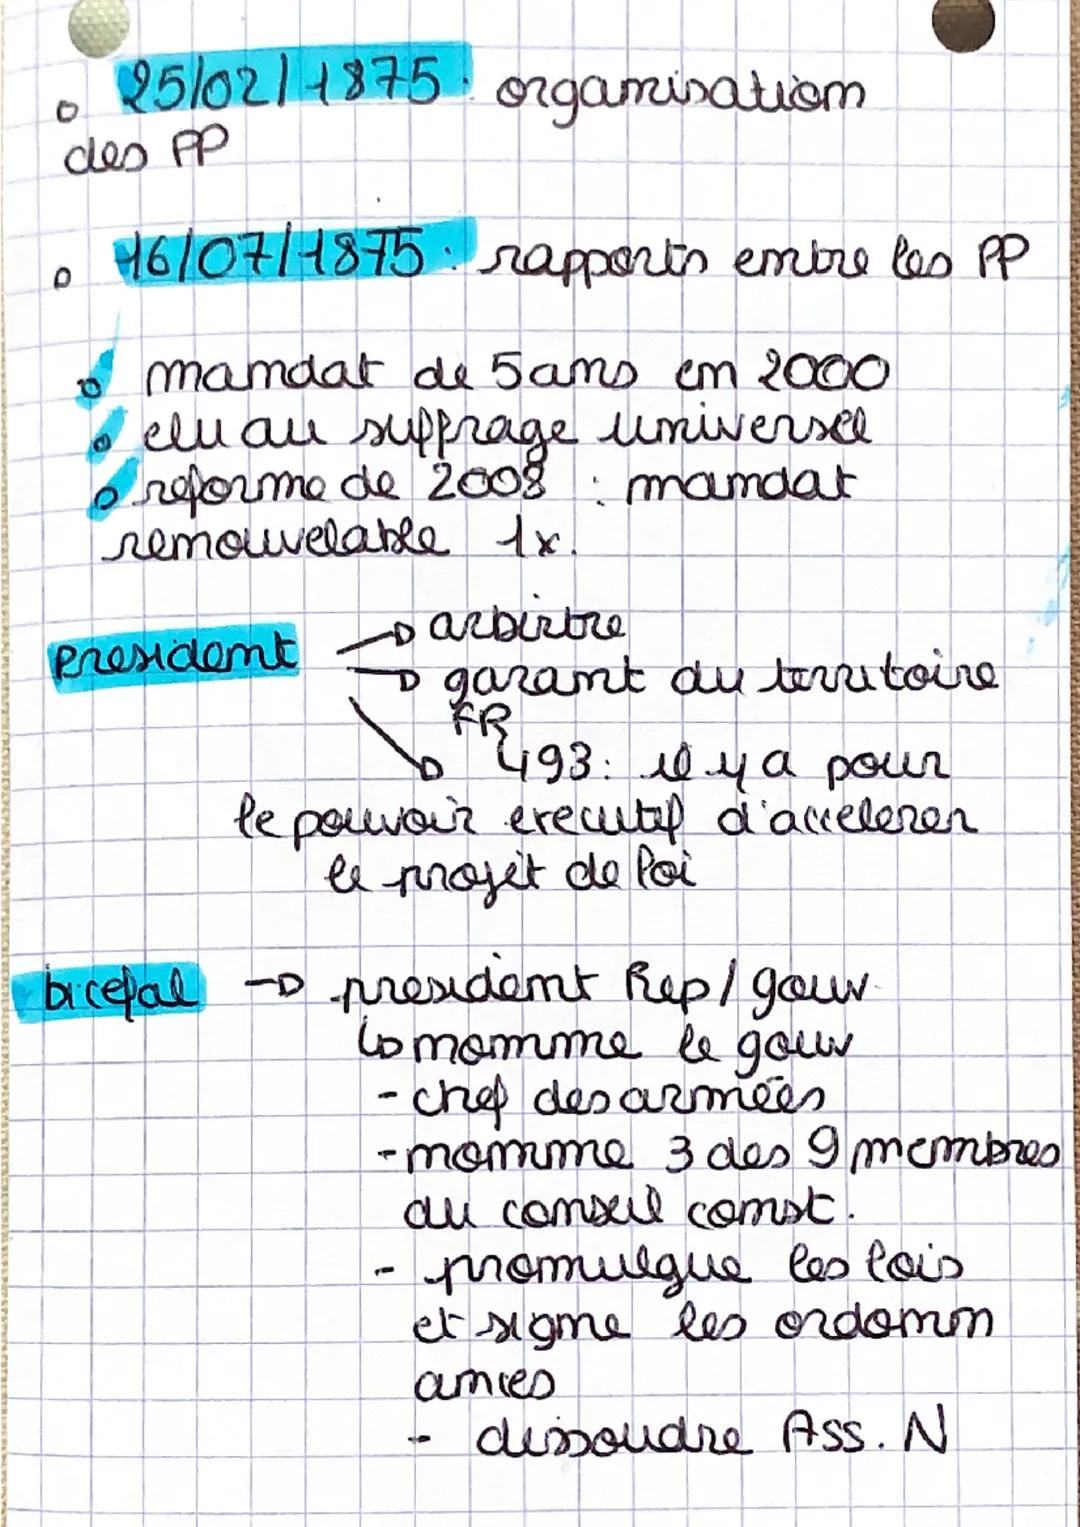 25/02/1875: organisation
des PP
16/07/1875: rapports entre les PP
mandat de 5 ans en 2000
elu au suffrage universel
reforme de 2008 : mandat
renouvelable 1x.
president → arbirtre
→ garant du territoire
FR
→ 493: il y a pour
le pouvoir executif d'accelerer
le projet de loi
bicefal → president Rep/gouv.
↳ nomme le gouv
- chef des armées
- nomme 3 des 9 membres
du conseil const.
- promulgue les lois
et signe les ordonn
ances
- dissoudre Ass. N